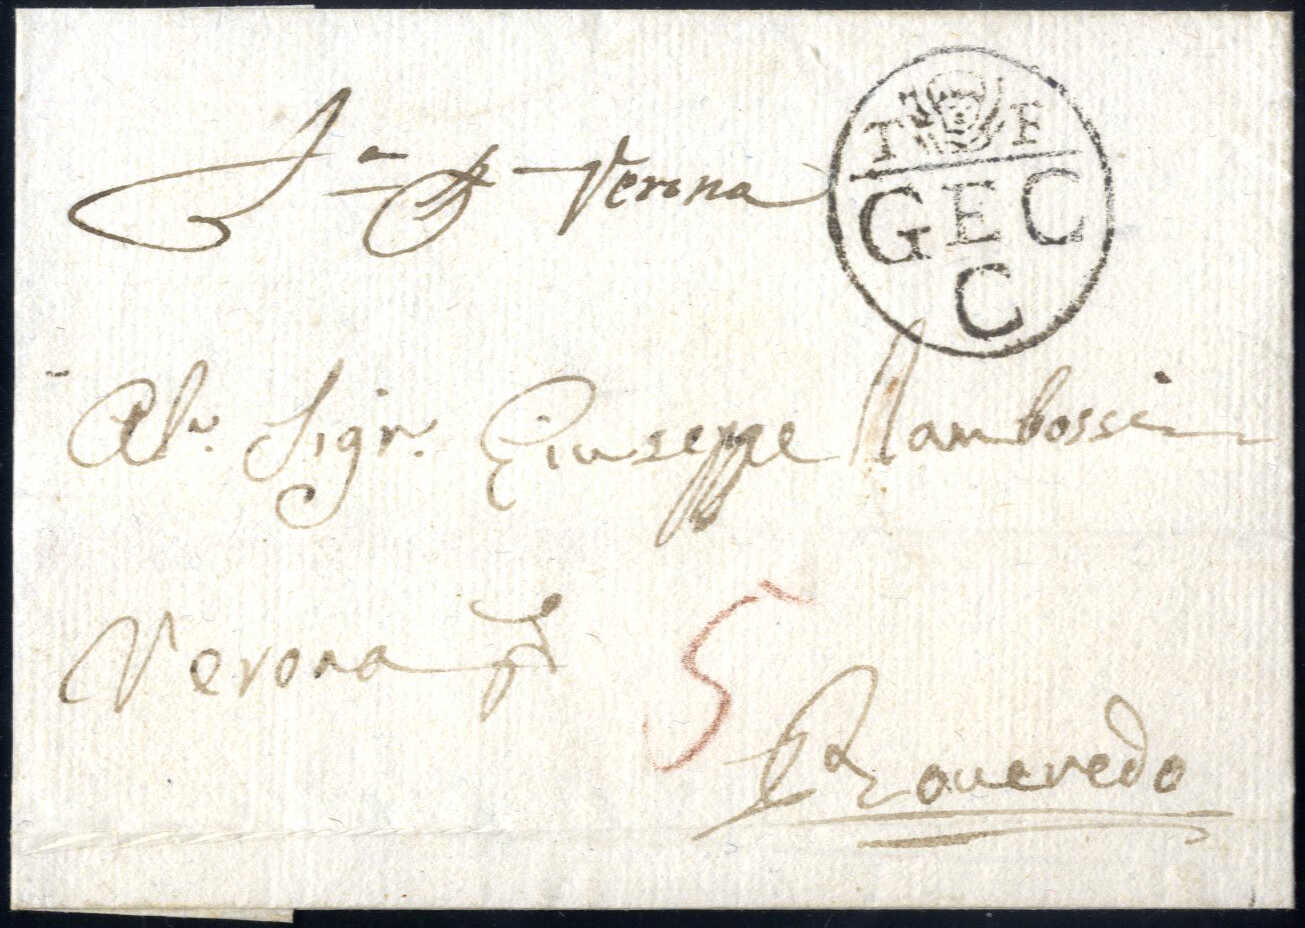 T E
GEC
C
Verona
Al Sigr. Giuseppe
Verona
5
Roveredo